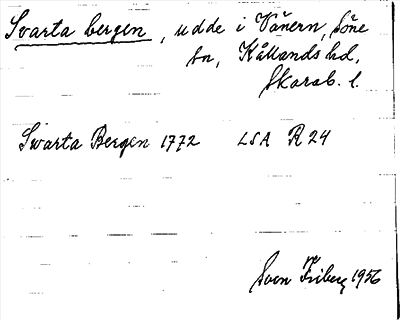 Svarta bergen, udde i Vänern, Söne
sn, Kållands hd,
Skarab. l.
Swarta Bergen 1772 LSA R24
Sven Friberg 1956